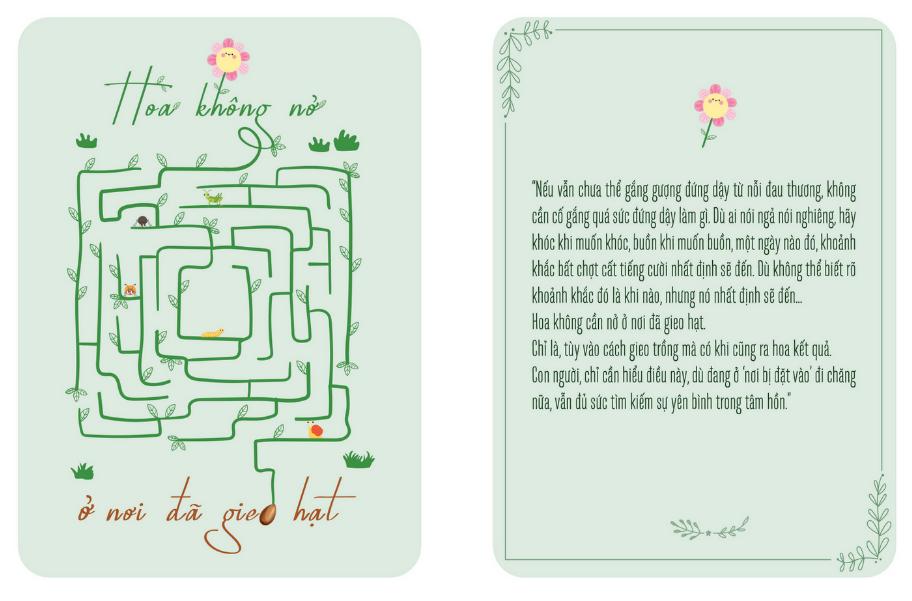 Hoa không nở
ở nơi đã gieo hạt
"Nếu vẫn chưa thể gắng gượng đứng dậy từ nỗi đau thương, không
cần cố gắng quá sức đứng dậy làm gì. Dù ai nói ngả nói nghiêng, hãy
khóc khi muốn khóc, buồn khi muốn buồn, một ngày nào đó, khoảnh
khắc bất chợt cất tiếng cười nhất định sẽ đến. Dù không thể biết rõ
khoảnh khắc đó là khi nào, nhưng nó nhất định sẽ đến...
Hoa không cần nở ở nơi đã gieo hạt.
Chỉ là, tùy vào cách gieo trồng mà có khi cũng ra hoa kết quả.
Con người, chỉ cần hiểu điều này, dù đang ở 'nơi bị đặt vào' đi chăng
nữa, vẫn đủ sức tìm kiếm sự yên bình trong tâm hồn."